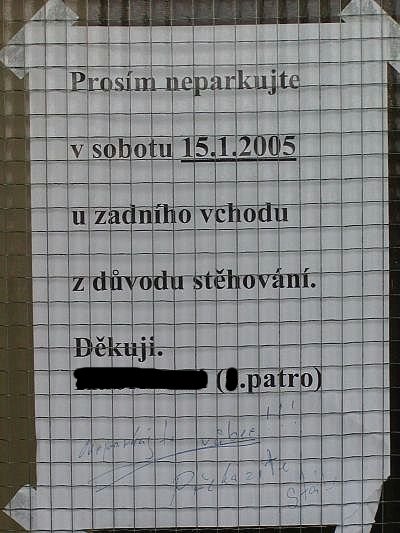 Prosím neparkujte
v sobotu 15.1.2005
u zadního vchodu
z důvodu stěhování.
Děkuji.
(.patro)
vůbec!!!
Překážíte